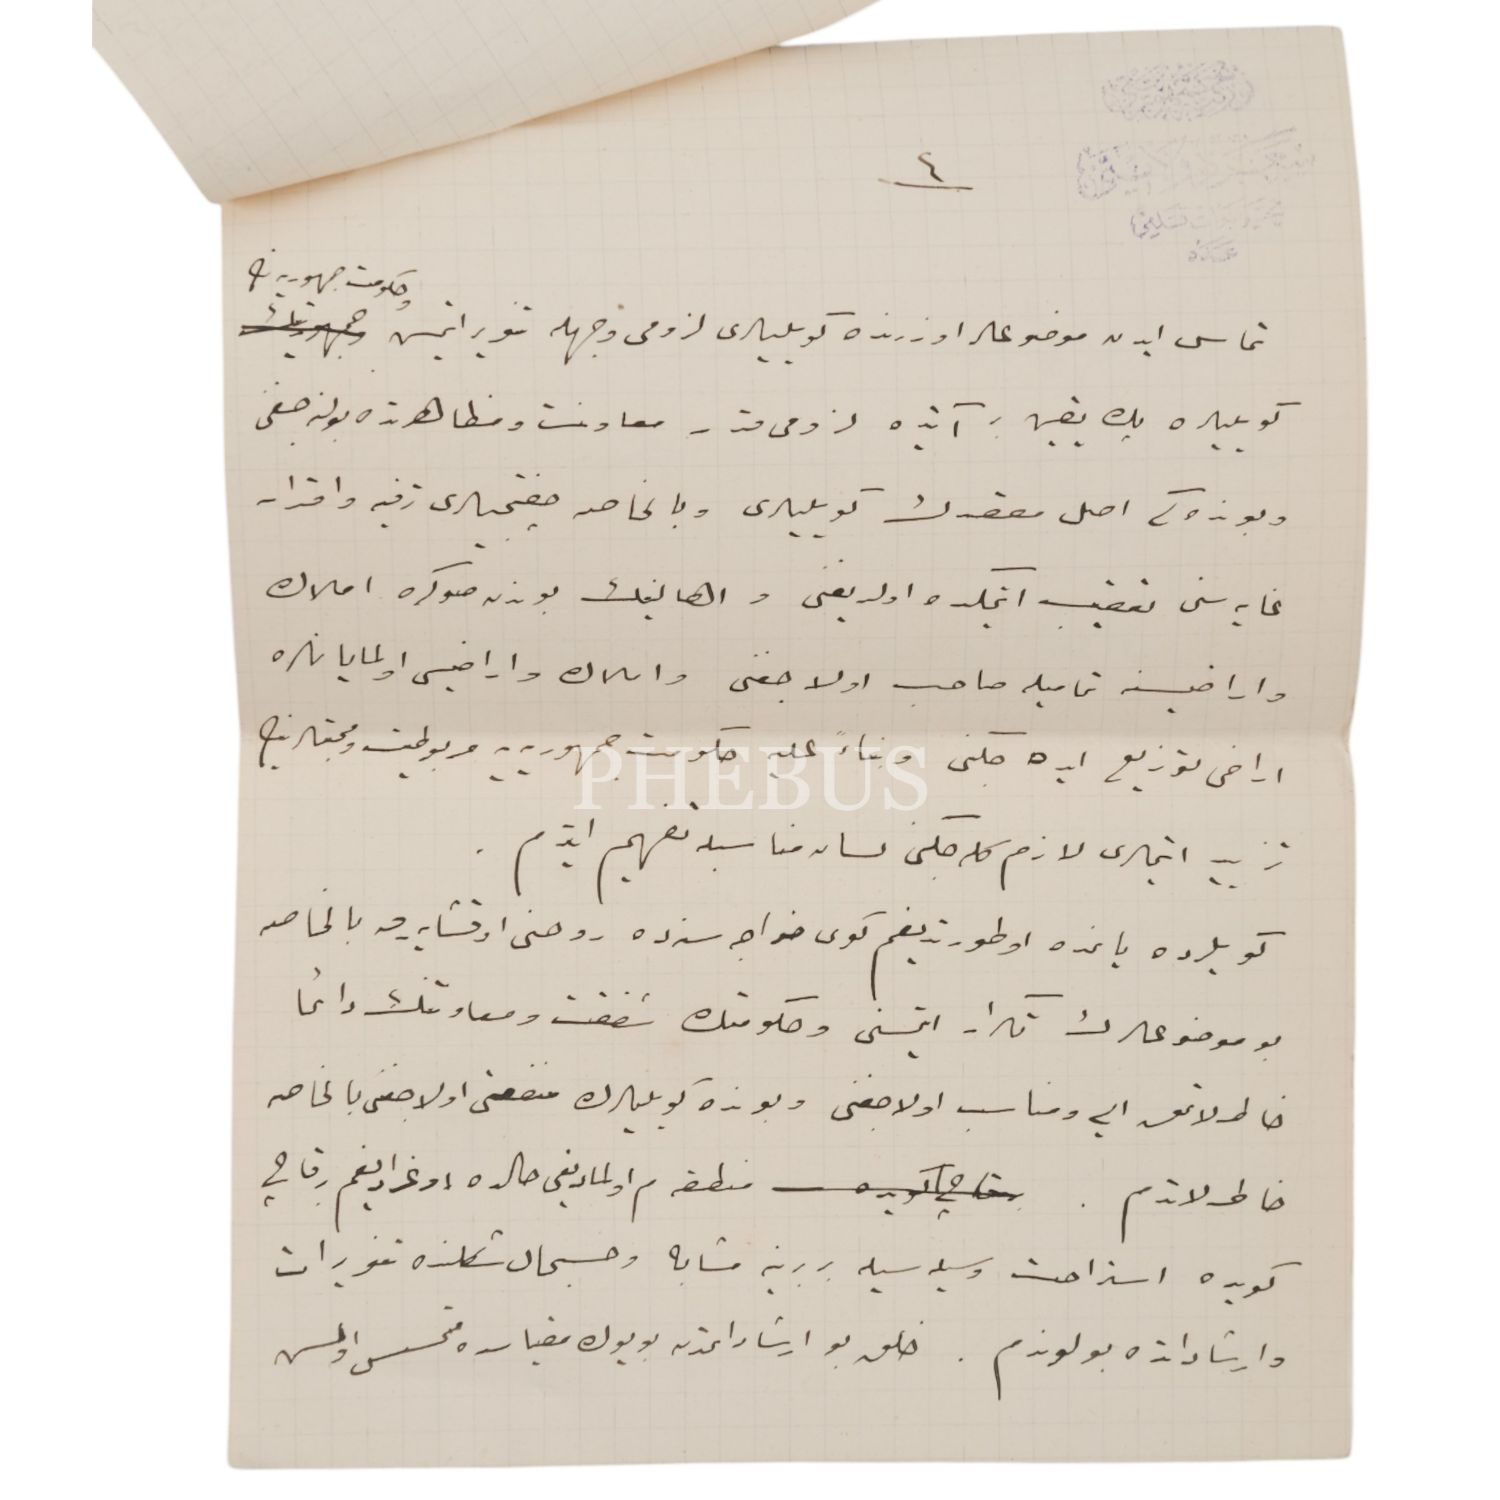 ٤
وحكومت جمهوريه نڭ
تماس ايدن موضوعلر اوزرنده كويليلرى لزومى وجهله تنوير ايتمش
كويليلره پك يقين بر آتيده لزومى قدر معاونت و مظاهرتده بولنه جغنى
وبونده كى اصل مقصدك كويليلرى وبالخاصه چفتجيلرى ترفيه واقدار
غايه سنى تعقيب ايتمكده اولديغنى و اهالينك بوندن صوكره املاك
واراضيسنه تماميله صاحب اولاجغنى واملاك واراضيسى اولمايانلره
اراضى توزيع ايده جكنى وبناءً عليه حكومت جمهوريه يه مربوطيت ومحبتلرينڭ
تزييد ايتملرى لازم كله جكنى لسان مناسبله تفهيم ايتدم .
كويلرده يانمده اوطورتديغم كوى خواجه سنده روحنى اوقشايه رق بالخاصه
بو موضوعلرك تكرار ايتمسنى وحكومتك شفقت ومعاونتنك دائما
خاطرلاتمق ايى ومناسب اولاجغنى وبونده كويليلرك منفعتى اولاجغنى بالخاصه
خاطرلاتدم . منطقه م اولمديغى حالده اوغراديغم رقاچى
كويده استراحت وسيله سيله بربرينه مشابه وحسبحال شكلنده تنويرات
وارشاداتده بولوندم . خلق بو ارشاداتمدن بويوك مقياسده متحسس اولمش
PHEBUS